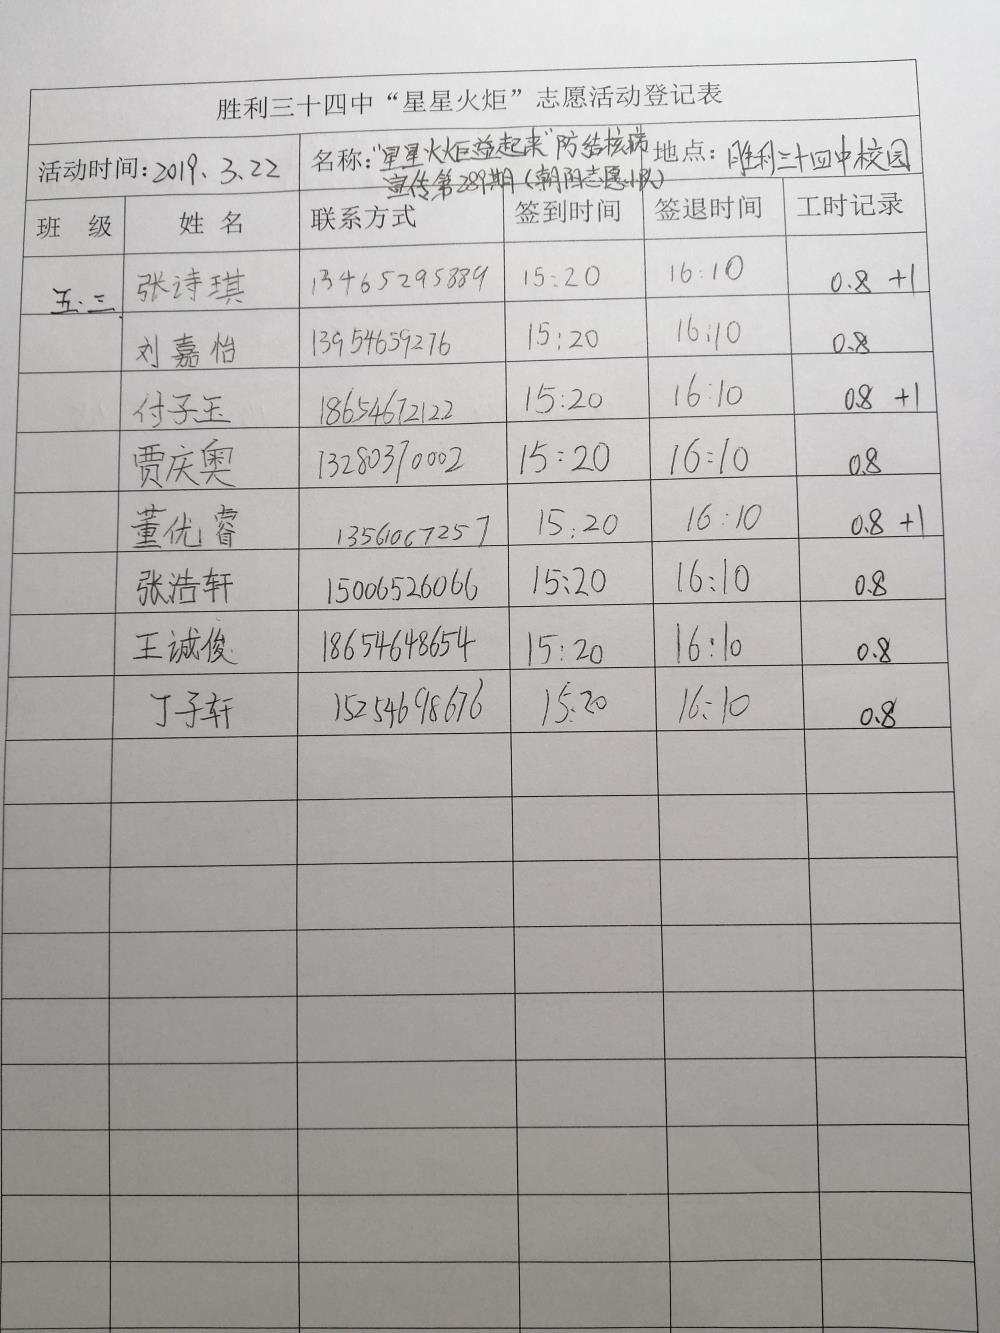 胜利三十四中“星星火炬”志愿活动登记表
活动时间:2019.3.22 名称:“星星火炬益起来”防结核病 地点:胜利三十四中校园
宣传第289期(朝阳志愿小队)
班 级 姓 名 联系方式 签到时间 签退时间 工时记录
五.三 张诗琪 13465295889 15:20 16:10 0.8 +1
刘嘉怡 13954659276 15:20 16:10 0.8
付子玉 18654672122 15:20 16:10 0.8 +1
贾庆奥 13280370002 15:20 16:10 0.8
董优睿 13561067257 15:20 16:10 0.8 +1
张浩轩 15006526066 15:20 16:10 0.8
王诚俊 18654648654 15:20 16:10 0.8
丁子轩 15254698676 15:20 16:10 0.8